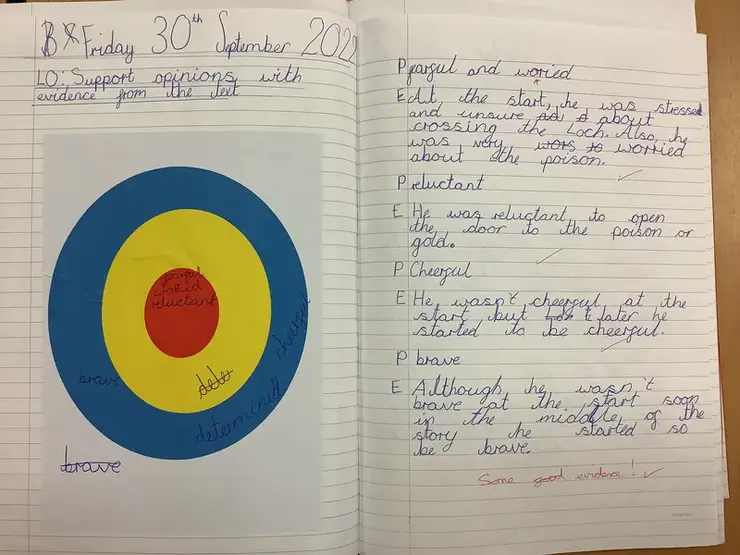 Friday 30th September 2022
LO: Support opinions with
evidence from the text
fearful
worried
reluctant
cheerful
brave
dete
determined
brave
P fearful and woried
E At the start, he was stressed
and unsure about
crossing the Loch. Also, he
was very wors to worried
about the poison.
P reluctant
E He was reluctant to open
the door to the poison or
gold.
P Cheerful
E He wasn't cheerful at the
start but later he
started to be cheerful.
P brave
E Although he wasn't
brave at the start soon
in the middle of the
story he started so
be brave.
Some good evidence!